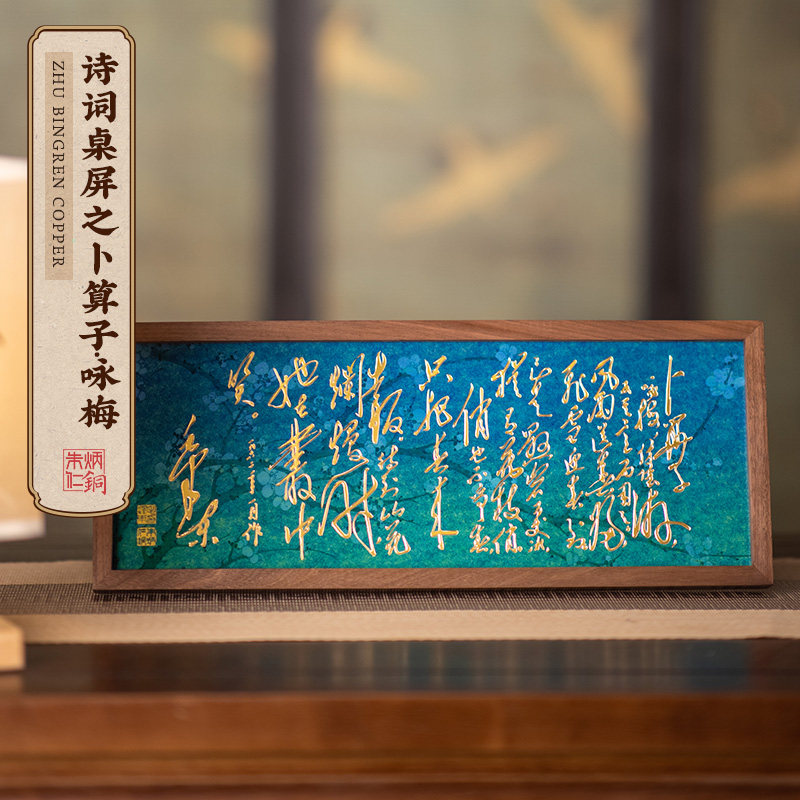 诗词桌屏之卜算子·咏梅
ZHU BINGREN COPPER
朱炳
仁銅
卜算子
风雨送春归
飞雪迎春到
已是悬崖百丈冰
犹有花枝俏
俏也不争春
只把春来
报。待到山花
烂漫时
她在叢中
笑。
毛泽东